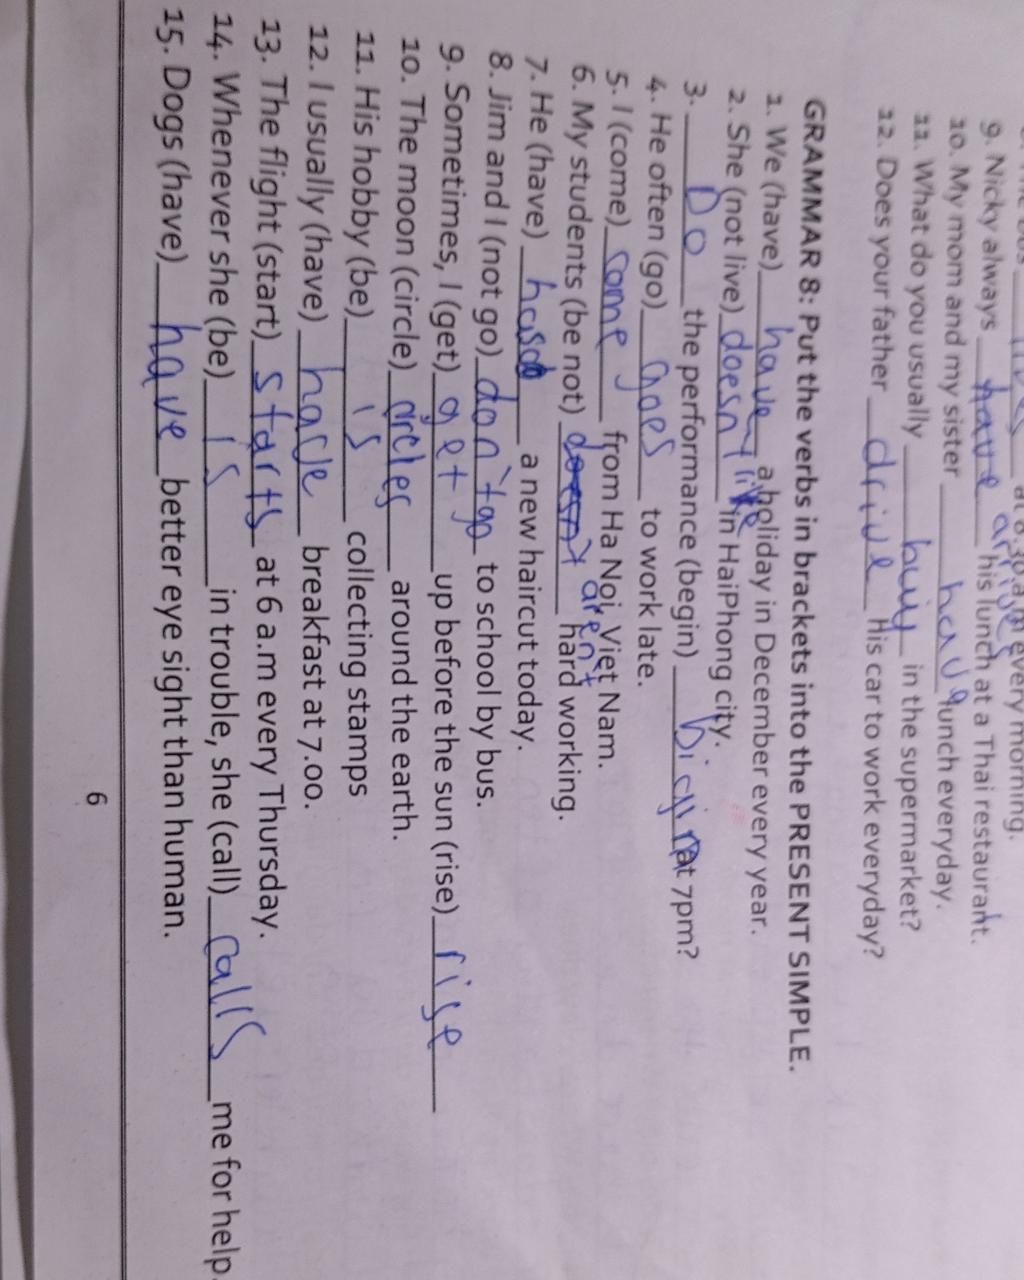 at 8.30 a.m every morning.
9. Nicky always have his lunch at a Thai restaurant.
10. My mom and my sister have lunch everyday.
11. What do you usually buiy in the supermarket?
12. Does your father drive His car to work everyday?
GRAMMAR 8: Put the verbs in brackets into the PRESENT SIMPLE.
1. We (have) have a holiday in December every year.
2. She (not live) doesn't live in HaiPhong city.
3. Do the performance (begin) at 7pm?
4. He often (go) goes to work late.
5. I (come) come from Ha Noi, Viet Nam.
6. My students (be not) doesn't aren't hard working.
7. He (have) has a new haircut today.
8. Jim and I (not go) don't go to school by bus.
9. Sometimes, I (get) get up before the sun (rise) rise
10. The moon (circle) circles around the earth.
11. His hobby (be) is collecting stamps
12. I usually (have) have breakfast at 7.00.
13. The flight (start) starts at 6 a.m every Thursday.
14. Whenever she (be) is in trouble, she (call) calls me for help.
15. Dogs (have) have better eye sight than human.
6